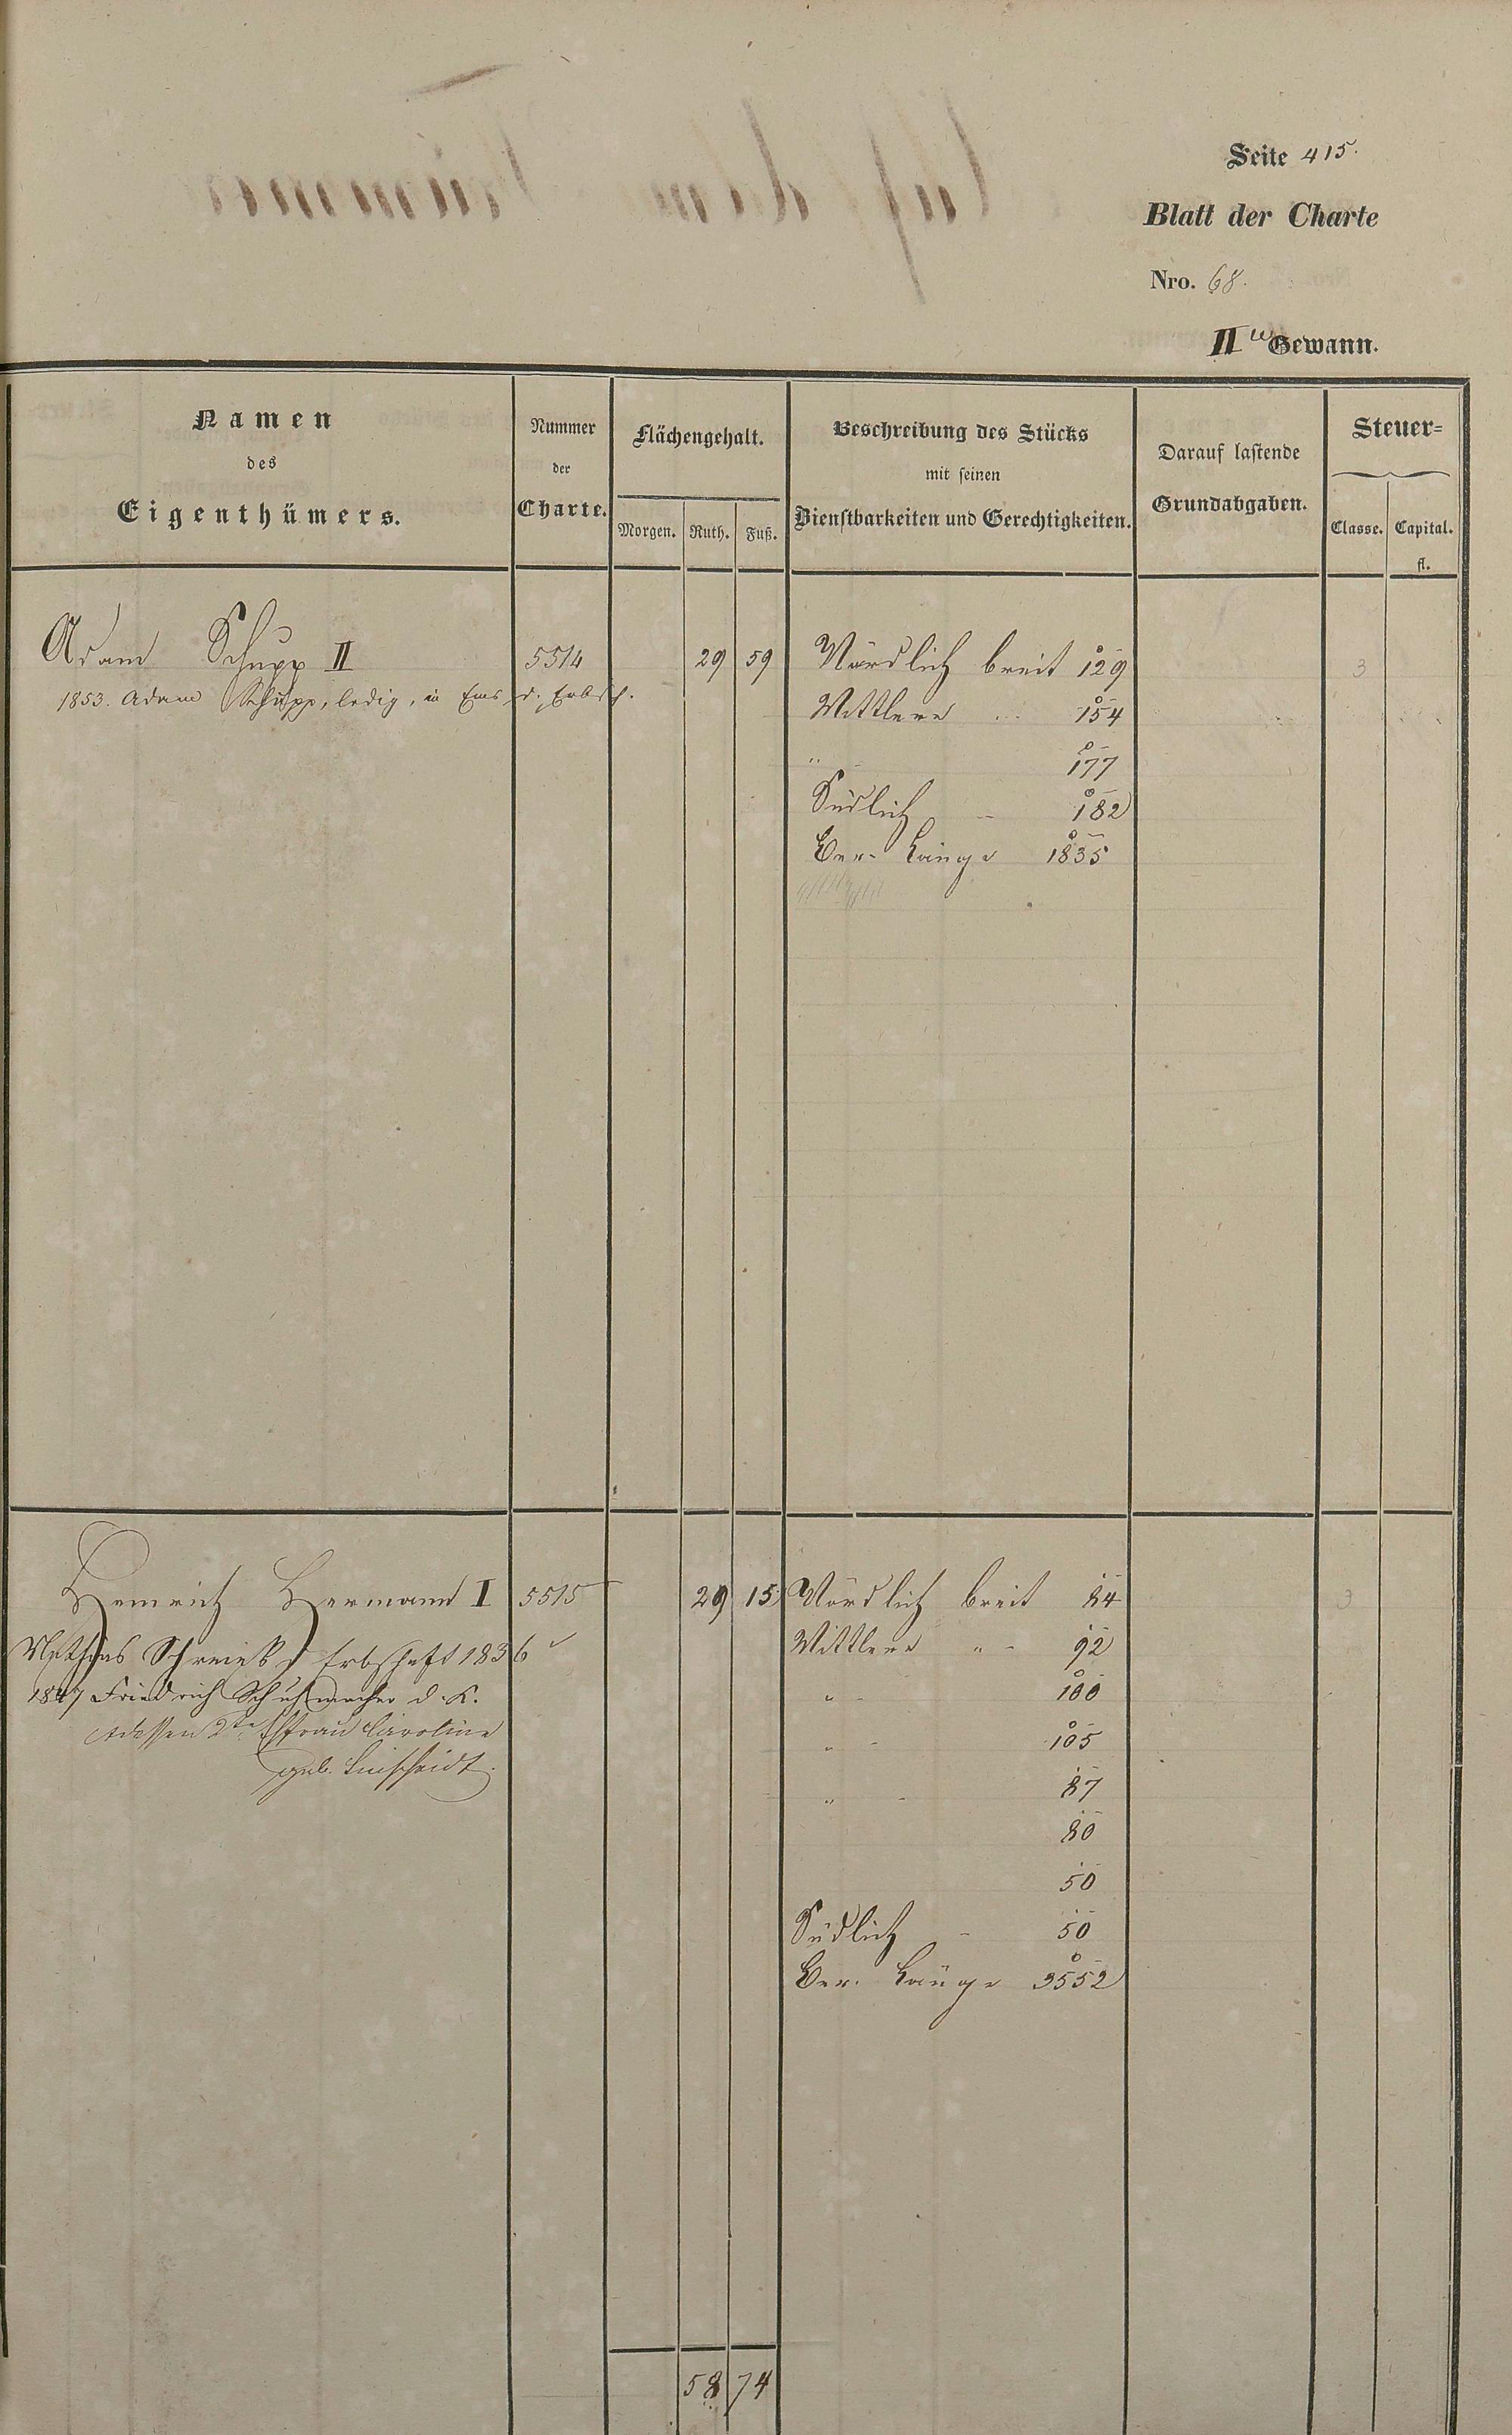 Seite 415.
Blatt der Charte
Nro. 68.
II Gewann.
Namen
des
Eigenthümers.
Nummer
der
Charte.
Flächengehalt.
Morgen. Ruth. Fuß.
Beschreibung des Stücks
mit seinen
Dienstbarkeiten und Gerechtigkeiten.
Darauf lastende
Grundabgaben.
Steuer=
Classe. Capital.
fl.
Adam Schupp II 5514 29 59 Nördlich breit 129 3
1853. Adam Schupp, ledig, in Ems d. Erbsch.
Mittlere 154
" 177
Südlich 182
Ber. Länge 1835
Heinrich Hermann I 5515 29 15 Nördlich breit 84 3
Mathias Erbschaft 1836 Mittlere " 92
1847 Friedrich Schuhmacher d. K. " 100
dessen 2te Ehfrau Caroline " 105
geb. Linscheidt.
" 87
80
50
Südlich 50
Ber. Länge 3552
58 74